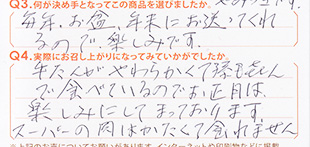 Q3.何が決め手となってこの商品を選びましたか。
毎年、お盆、年末にお送ってくれ
るので、楽しみです。
Q4.実際にお召し上がりになってみていかがでしたか。
牛たんがやわらかくて孫もたくさん
で食べているのでお正月は、
楽しみにしてまっております。
スーパーの肉はかたくて食れません